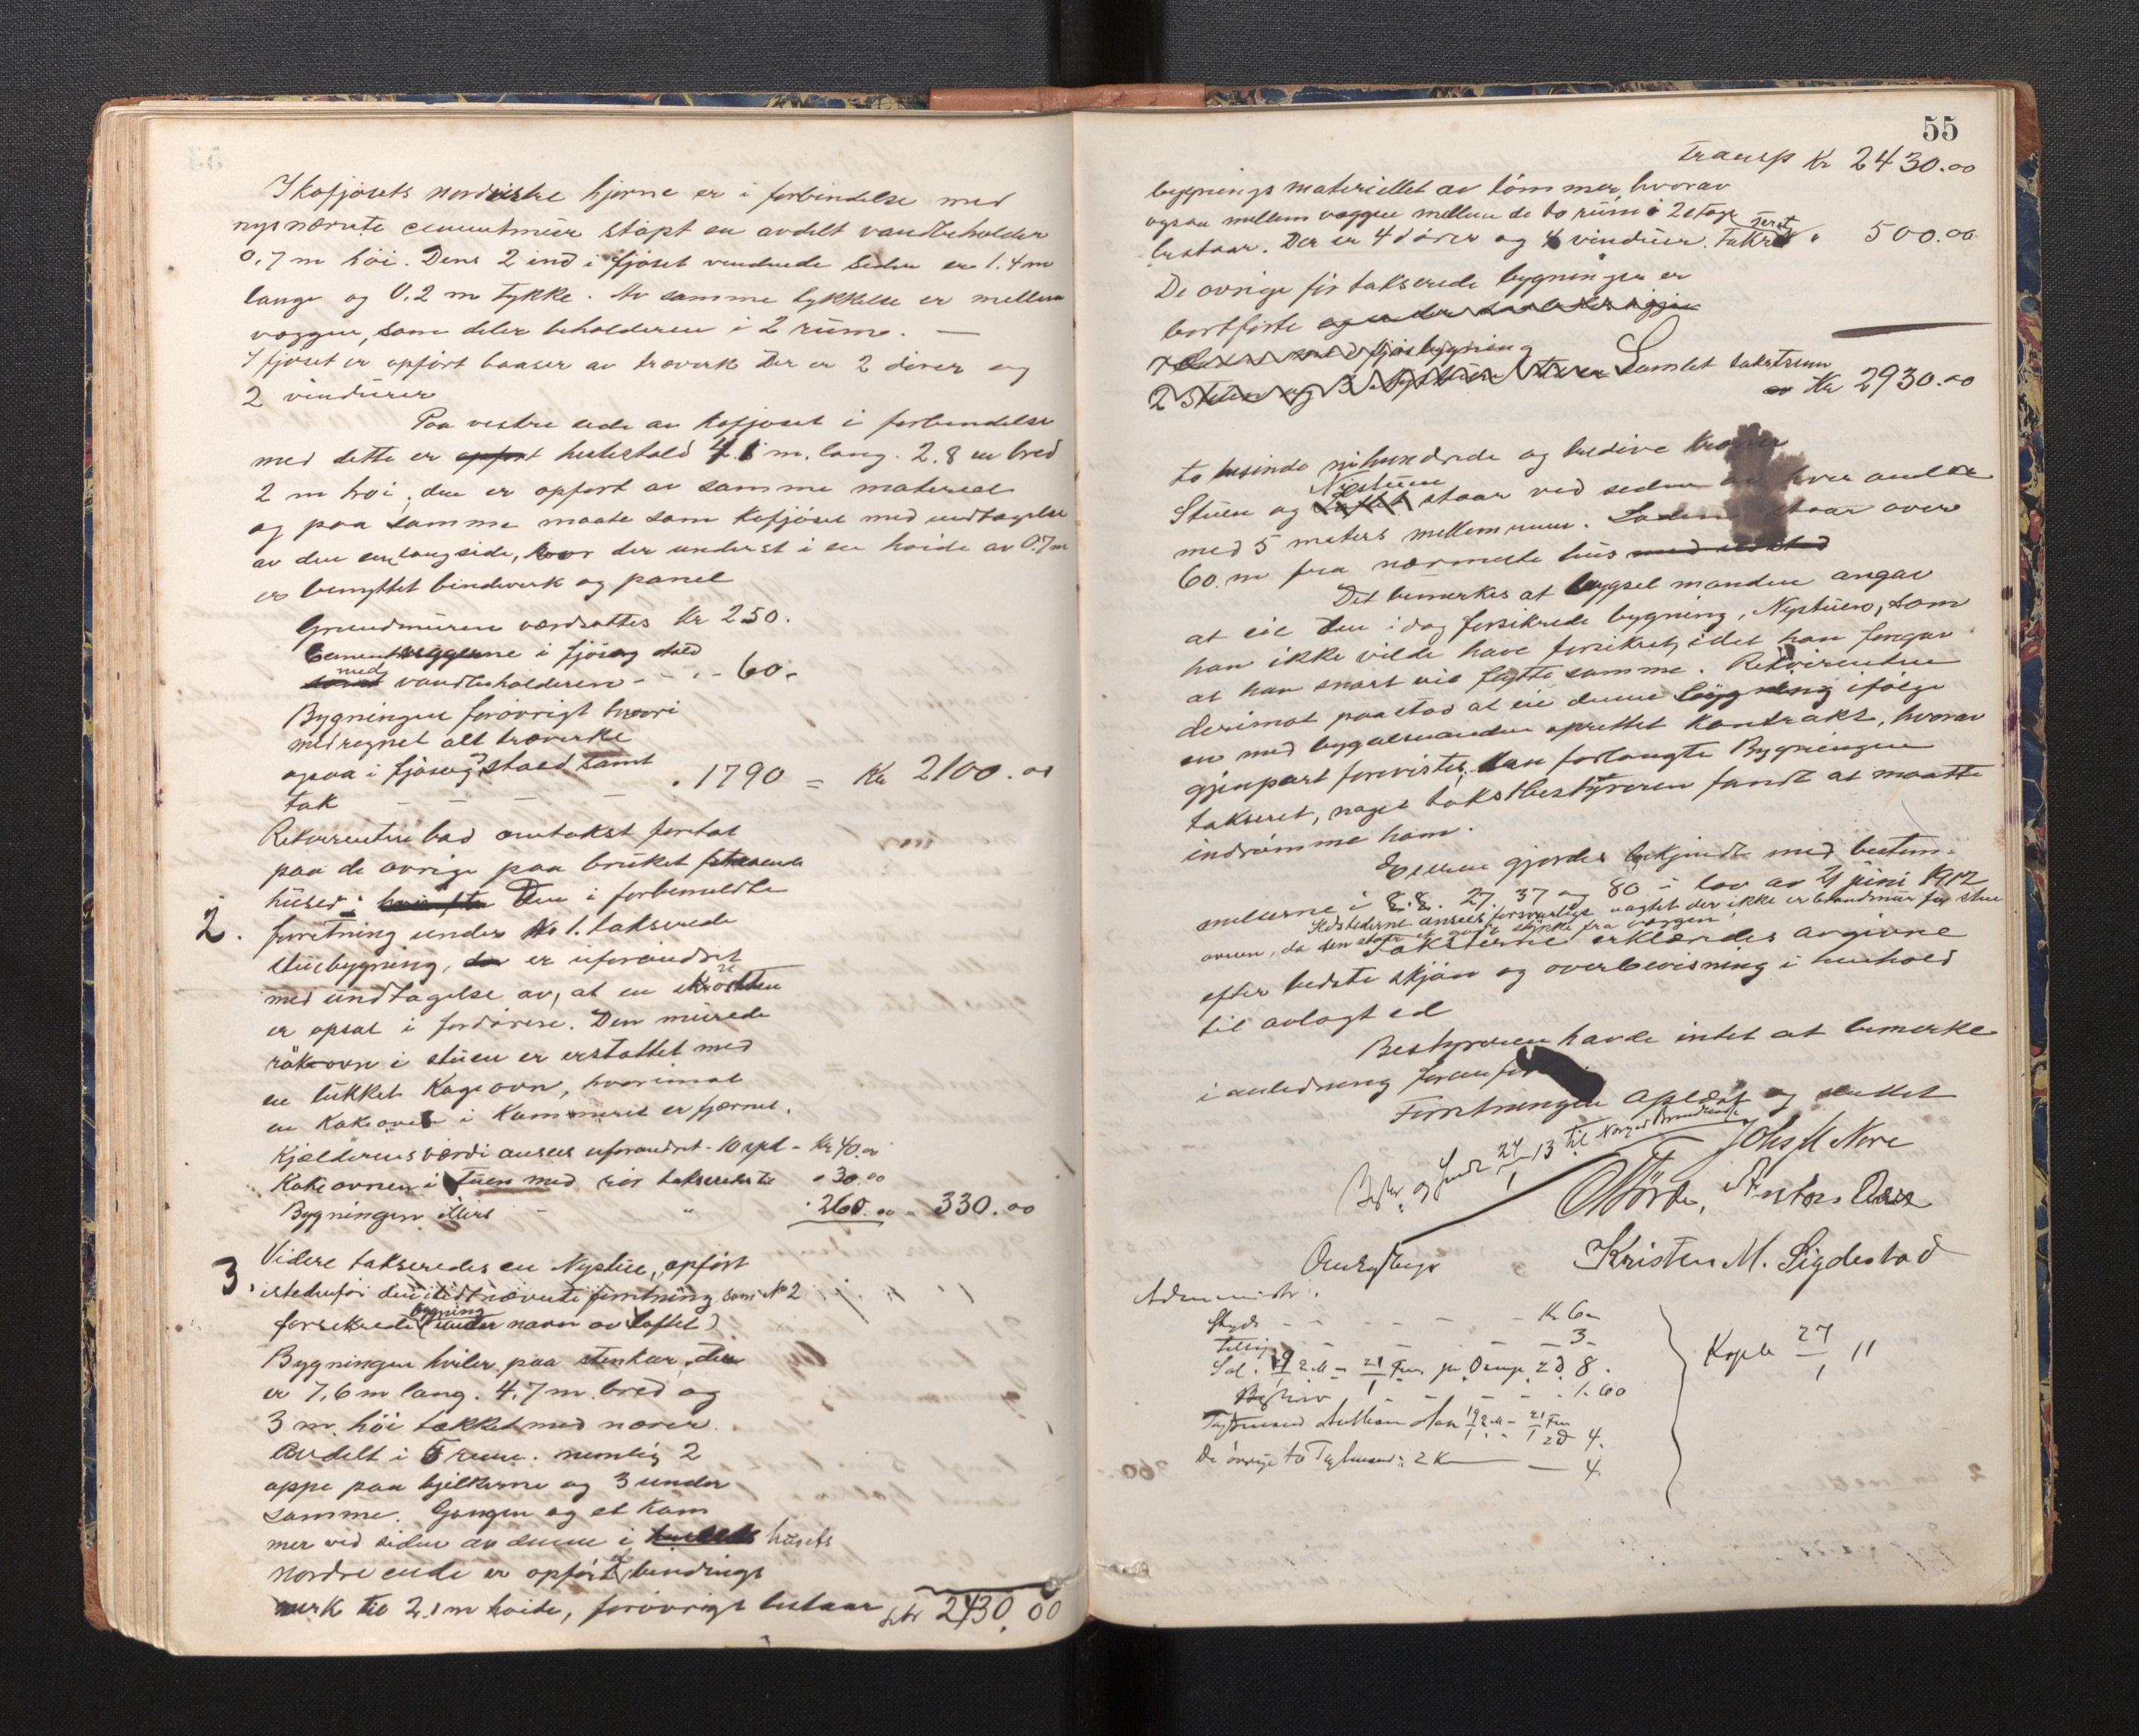 I kofjøsets nordvestre hjørne er i forbindelse med
nysnævnte cementmur støpt en avdelt vandbeholder
0.7 m høi. Dens 2 ind i fjøset vendende sider er 1.4 m
lange og 0.2 m tykke. Av samme tykkelse er mellem
væggen, som deler beholderen i 2 rum. —
I fjøset er opført baaser av træverk Der er 2 dører og
2 vinduer
Paa vestre side av kofjøset i forbindelse
med dette er opført hestestald 4.1 m. lang. 2.8 m bred
2 m høi; den er opført av samme materiale
og paa samme maate som kofjøset med undtagelse
av den ene langside, hvor der underst i en høide av 0.7 m
er benyttet bindverk og panel
Grundmuren værdsattes Kr 250.
Cementvæggene i fjøs og stald
med vandbeholderen - - - - 60.
Bygningen forøvrigt hvori
medregnet alt træverke
ogsaa i fjøs og stald samt
tak — — — — . 1790 = Kr 2100.00
Rekvirenten bad omtakst foretat
paa de øvrige paa bruket staaende
huser:
2. Den i forbemeldte
forretning under No 1. takserede
stuebygning, er uforandret
med undtagelse av, at en
er opsat i fordøren. Den murede
røkovn i stuen er erstattet med
en lukket Kageovn, hvorimot
en Kakovn i Kammeret er fjernet.
Kjælderens værdi ansees uforandret - Kr 40.00
Kakovnen i stuen med rør takseredes til " 30.00
Bygningen ellers - " 260.00 " 330.00
3. Videre takseredes en Nystue, opført
istedenfor den i sidstnævnte forretning som No 2
forsikrede bygning (under navn av Loftet)
Bygningen hviler paa stenkar, den
er 7,6 m lang. 4.7 m. bred og
3 m. høi tækket med næver.
Avdelt i 5 rum. nemlig 2
oppe paa bjelkerne og 3 under
samme. Gangen og et kam
mer ved siden av denne i husets
nordre ende er opført af bindings
verk til 2.1 m høide, forøvrigt bestaar
Latr 2430.00
55
Transp Kr 2430.00
bygningsmateriellet av tømmer, hvorav
ogsaa mellem væggen mellem de to rum i 2 etage
bestaar. Der er 4 dører og 4 vinduer. Takseret " 500.00
De øvrige før takserede bygninger er
bortførte
Samlet takstsum
Kr 2930.00
to tusinde nihundrede og tredive kroner
Stuen og Nystuen staar ved siden av hver andre
med 5 meters mellemrum. Laden staar over
60. m fra nærmeste hus
Det bemerkes at bygselmanden angav
at eie den i dag forsikrede bygning, Nystuen, som
han ikke vilde have forsikret, idet han foregav
at han snart vil flytte samme. Rekvirenten
derimot paastod at eie denne bygning ifølge
en med bygselmanden oprettet kontrakt, hvorav
gjenpart forevistes. Han forlangte Bygningen
takseret, noget takstbestyreren fandt at maatte
indrømme ham.
Eieren gjordes bekjendt med bestem-
melserne i §.§. 27. 37 og 80 i lov av 21 juni 1912
Ildstederne ansees forsvarlige uagtet der ikke er brandmur for stue
ovnen, da den staar et godt stykke fra væggen
Taksterne erklæredes avgivne
efter bedste skjøn og overbevisning i henhold
til avlagt ed
Bestyreren havde intet at bemerke
i anledning
Forretningen oplæst og sluttet
Johs M Nore
Kristen M. Sigdestad
Administr.
Skyds - - - - - Kr 6-
Tillæg - - - - - 3-
2 d 8.
1.60
2 d 4.
De øvrige to 2 K — 4.